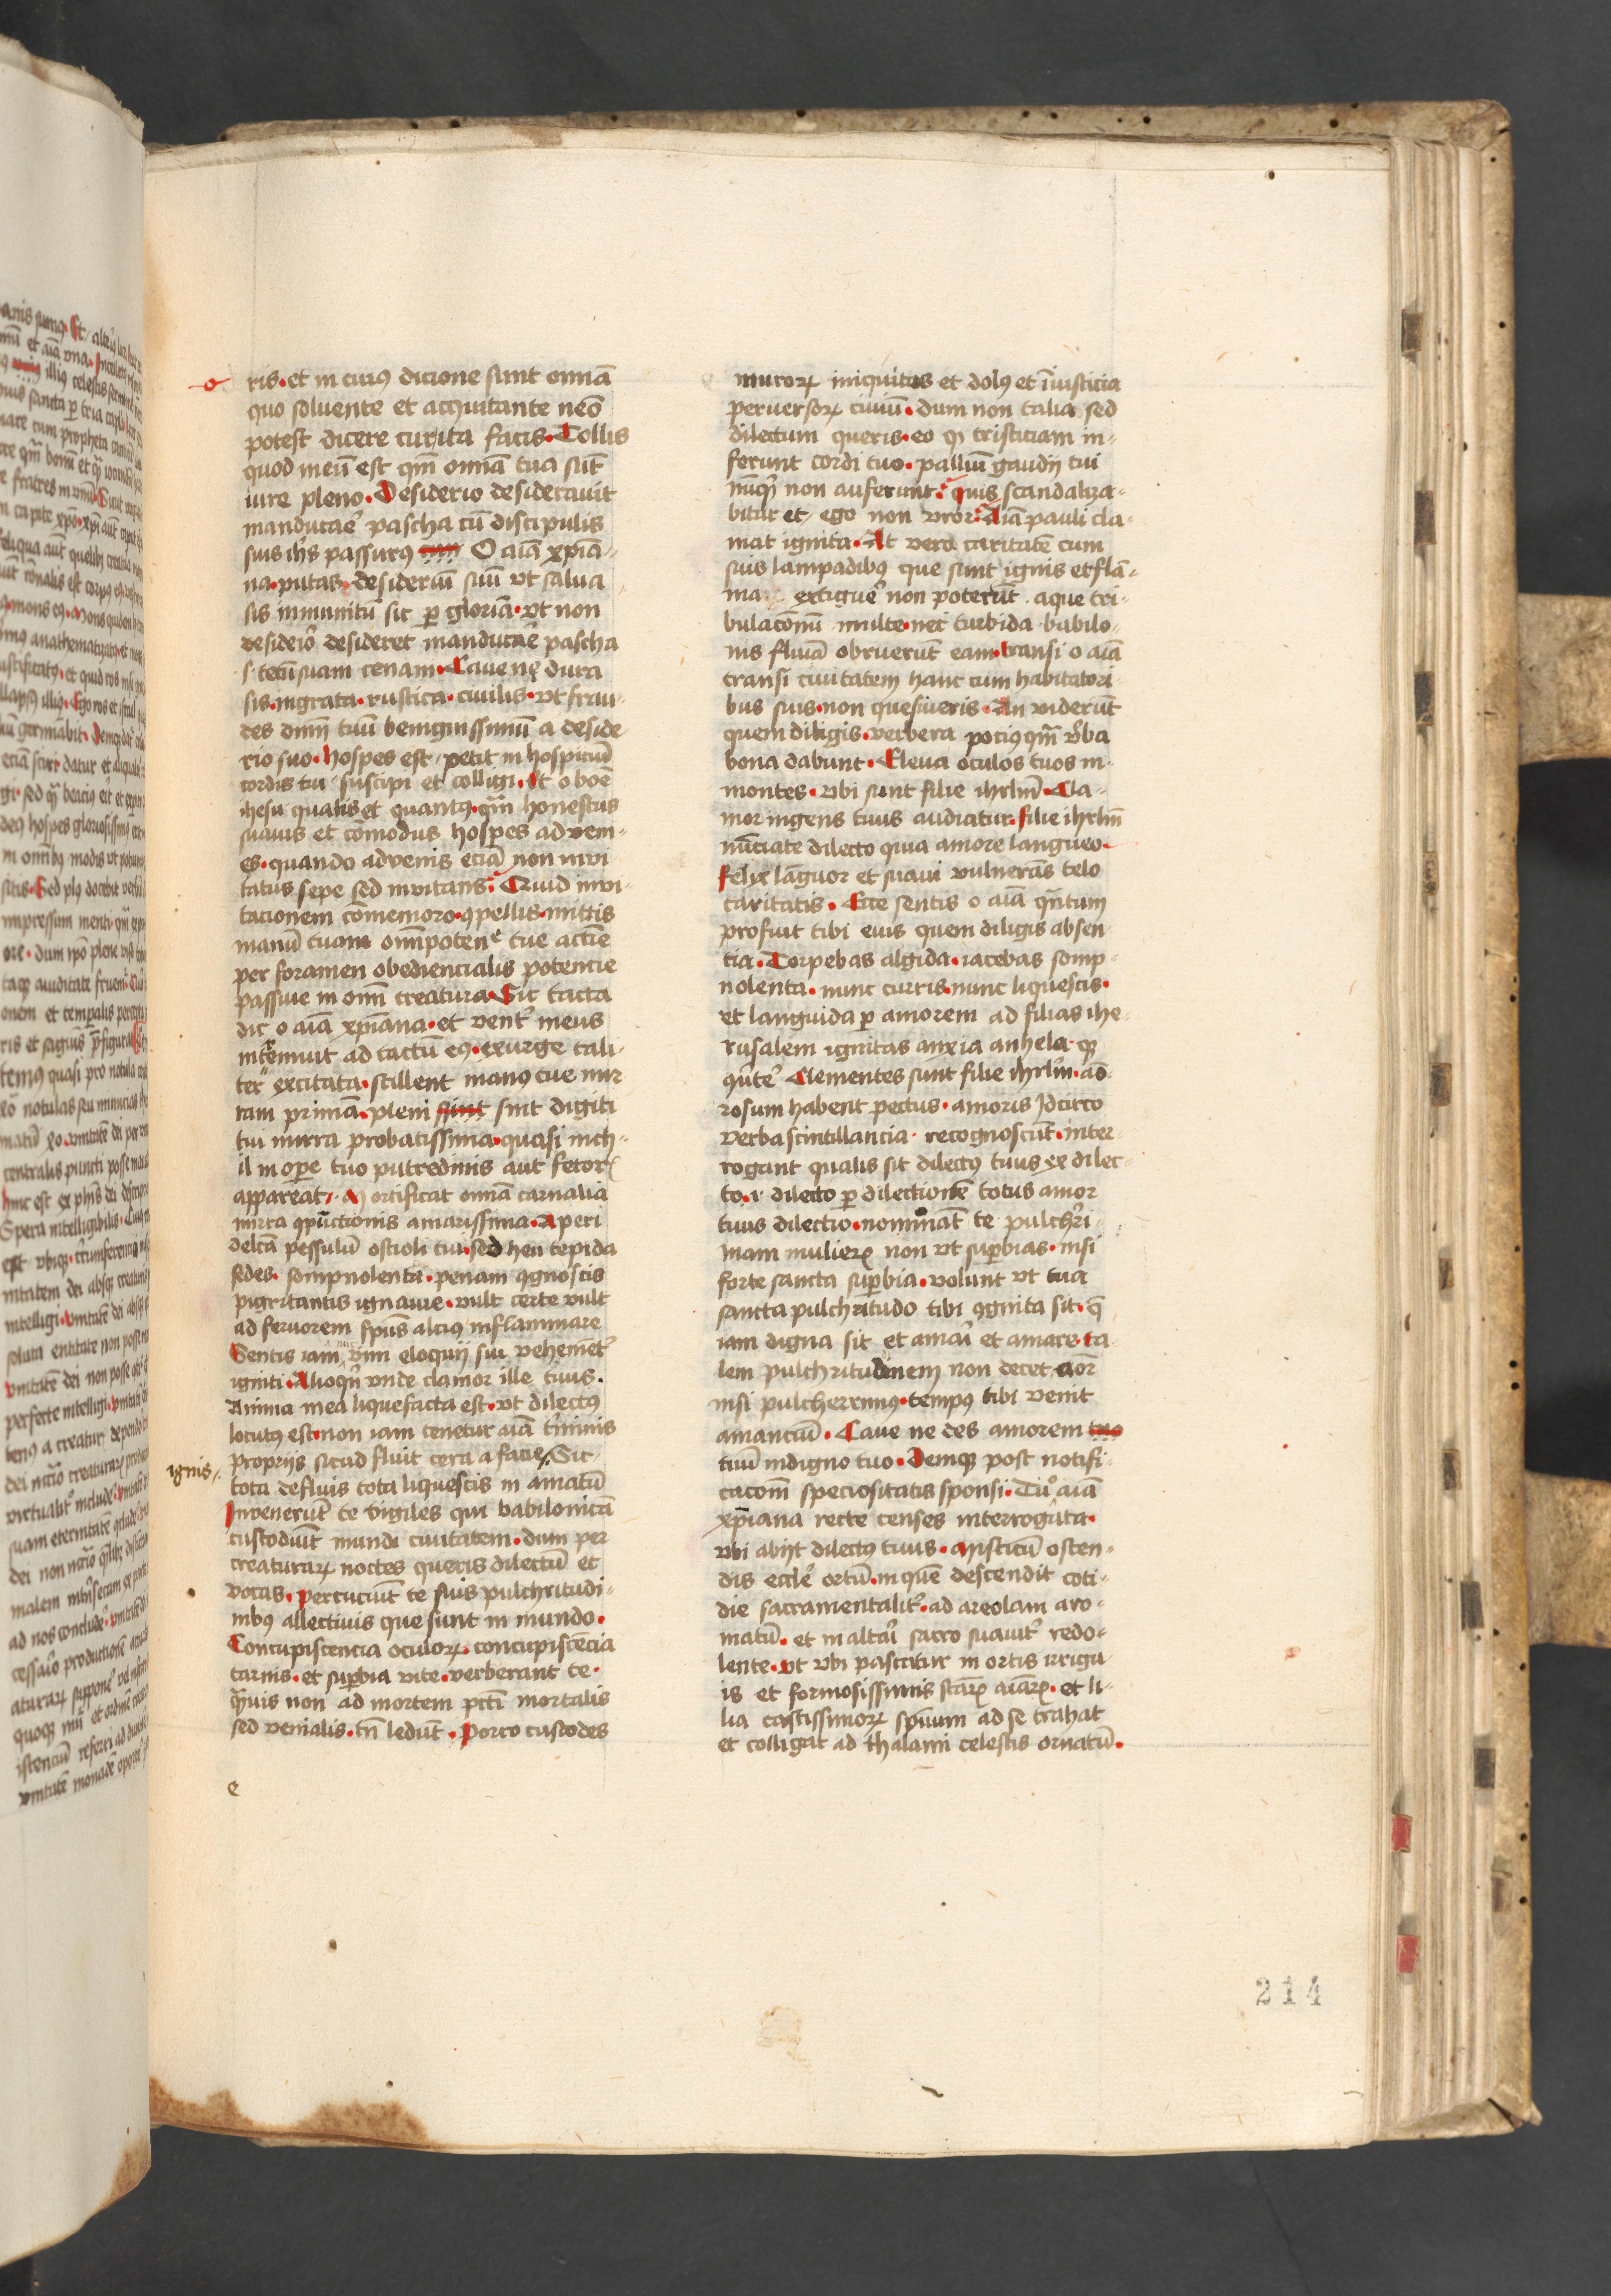 ris. et in cuiꝯ dicione sunt om̄ia
quo soluente et acquitante nēo
potest dicere cur ita facis. Tollis
quod meū est qm̄ om̄ia tua sūt
iure pleno. Desiderio desiderauit
manducaē pascha cū discipulis
suis ih̄s passurꝯ O aīa xp̄ia-
na. putas desideriū suū vt salua
sis in munitū sic ꝑ gloriā. vt non
desiderō desideret manducaē pascha
s. tecū suam cenam. Caue ne dura
sis. ingrata. rustica. ciuilis. vt frau-
des dn̄m tuū benignissimū a deside-
rio suo. hospes est / petit in hospiciū
cordis tui / suscipi et colligi. Et o boē
ihesu qualis et quantꝯ. qm̄ honestus
suauis et cōmodus hospes ad veni-
es. quando advenis eciā non inui-
tatus sepe sed inuitans. Quid inui-
tacionem cōmemoro. ꝯpellis. mittis
manū tuam om̄ipoten tue acc̄ie
per foramen obediencialis potencie
passiue in om̄i creatura. Sic tacta
dic o aīa xp̄iana. et vent̄ meus
int̄remuit ad tactū eꝯ. exurge tali-
ter excitata. stillent manꝯ tue mir
ram primā. pleni sint digiti
tui mirra probatissima. quasi nich-
il in oꝑe tuo putredinis aut fetorꝭ
appareat. Mortificat om̄ia carnalia
mirra ꝯpūctionis amarissima. Aperi
delc̄a pessulū ostioli tui. sed heu tepida
sedes. sompnolenta. penam ꝯgnoscis
pigritantis ignauie. vult certe vult
ad feruorem sp̄us alcius inflammare
Sentis iam vim eloquij sui vehemēt̄
igniti. Alioqn̄ vnde clamor ille tuus.
Anima mea liquefacta est. vt dilectus
locutꝯ est. non iam tenetur aīa t̄minis
proprijs sicud fluit cera a facie. Sic
ignis
tota defluis tota liquescis in amatū
Inuenerūt te vigiles qui babilonicā
custodiūt mundi ciuitatem. dum per
creaturaꝝ noctes queris dilectū et
vocas. percuciūt te suis pulchritudi-
nibꝯ allectiuis que sunt in mundo.
Concupiscencia oculoꝝ. concupiscēcia
carnis. et suꝑbia vite. verberant te.
qͣuis non ad mortem pct̄i mortalis
sed venialis. tn̄ ledūt. Porro custodes
e
muroꝝ iniquitas et dolꝯ et īiusticia
peruersoꝝ ciuiū. dum non talia sed
dilectum queris. eo ꝙ tristiciam in-
ferunt cordi tuo. palliū gaudij tui
nūqͣ non auferunt. quis scandaliza-
bitur et ego non vror. Aīa pauli cla-
mat ignita. At vera caritatē cum
suis lampadibꝯ que sunt ignis et flā-
ma extiguē non poterūt aque tri-
bulacōnū multe. nec turbida babilo-
nis fluīa obruerūt eam. transi o aīa
transi ciuitatem hanc cum habitatori-
bus suis. non quesiueris. An viderūt
quem diligis. verbera pociꝯ qm̄ v̄ba
bona dabunt. Eleua oculos tuos in
montes. vbi sunt filie ihrlm̄. Cla-
mor ingens tuus audiatur. filie ihrlm̄
nūciate dilecto quia amore langueo.
felyx lāguor et suaui vulnerās telo
caritatis. Ecce sentis o aīa qͣntum
profuit tibi euis quem diligis absen-
tia. Torpebas algida. iacebas somp-
nolenta. nunc curris. nunc liquescis.
et languida ꝑ amorem ad filias ihe-
rusalem ignitas anxia anhela. ꝙ
qn̄te Clementes sunt filie ihrlm̄. aō-
rosum habent pectus. amoris Idcirco
verba scintillancia. recognoscūt. inter-
rogant qualis sit dilectꝯ tuus ex dilec-
to. i dilecto ꝑ dilectionē totus amor
tuus dilectio. nominat̄ te pulchr̄i-
mam mulieꝝ non vt suꝑbias. nisi
forte sancta suꝑbia. volunt vt tua
sancta pulchritudo tibi ꝯgnita sit. ꝙ
iam digna sit et amaī et amare. ta-
lem pulchritudinem non decet aōr
nisi pulcherrimꝯ. tempꝯ tibi venit
amanciū. Caue ne des amorem
tuū indigno tuo. Demqꝫ post notifi-
cacōm speciositatis sponsi. Tu aīa
xp̄iana recte censes interrogata.
vbi abijt dilectꝯ tuus. Misticū osten-
dis eccl̄e ortū. in quē descendit coti-
die sacramentalit̄. ad areolam aro-
matū. et in altāi sacro suauit̄ redo-
lente. vt vbi pascitur in ortis irrigu-
is et formosissimis stāꝝ aīaꝝ. et li-
lia castissimoꝝ sp̄uum ad se trahat
et colligat ad thalami celestis ornatū.
214